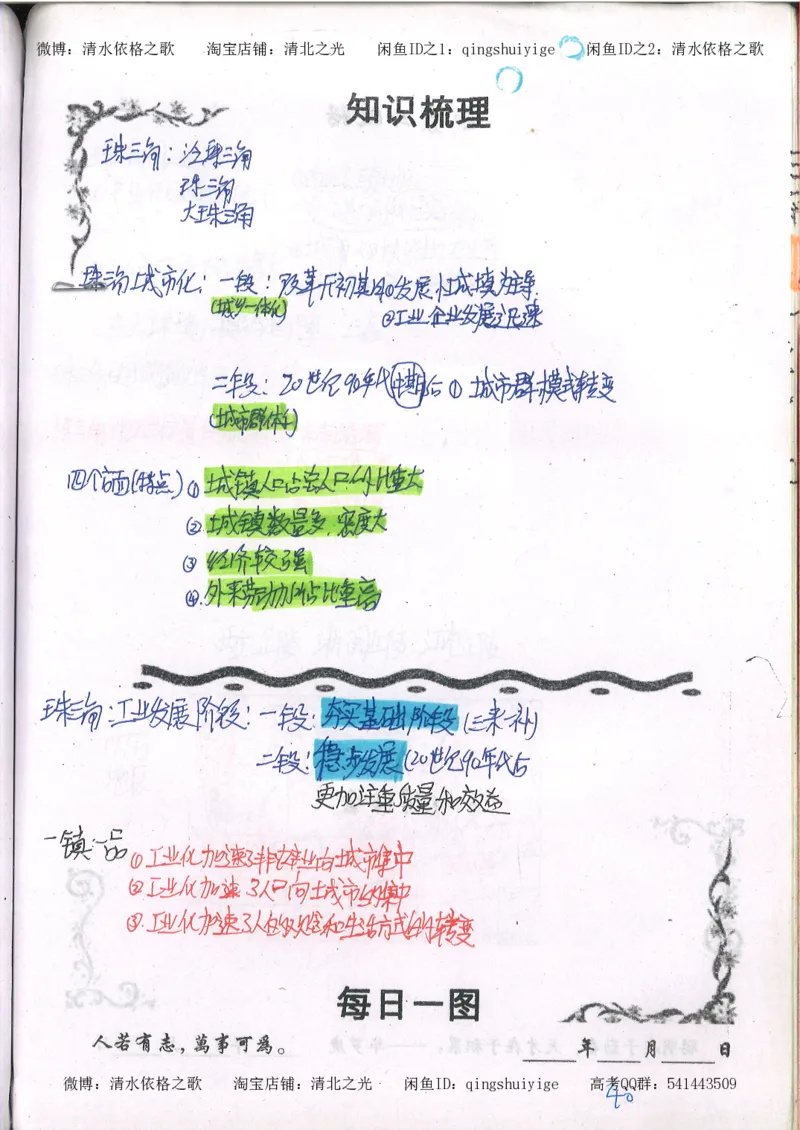 微博：清水依格之歌 淘宝店铺：清北之光 闲鱼ID之1：qingshuiyige 闲鱼ID之2：清水依格之歌
知识梳理
珠三角：泛珠三角
珠三角
大珠三角
珠三角城市化：一段：改革开初期①发展小城镇为主导
(城乡一体化) ②工业企业发展迅速
二段：20世纪90年代中期后①城市群模式转变
(城市群体)
四个方面(特点) ①城镇人口占总人口的比重大
②城镇数量多,密度大
③经济较强
④.外来劳动力占比重高
珠三角:工业发展阶段：一段：夯实基础阶段(三来一补)
二段：稳步发展(20世纪90年代后
更加注重质量和效益
一镇一品
①工业化加速了非农业向城市集中
②工业化加速了人口向城市的集中
③.工业化加速了人的观念和生活方式的转变
每日一图
人若有志，萬事可為。
年 月 日
微博：清水依格之歌 淘宝店铺：清北之光 闲鱼ID：qingshuiyige 高考QQ群：541443509
40